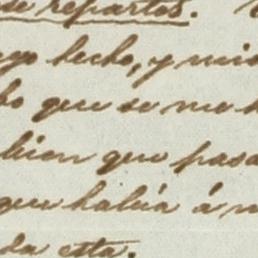 se repartos.
go hecho, y mis
bo que se me h
bien que pasa
que había á m
da esta.